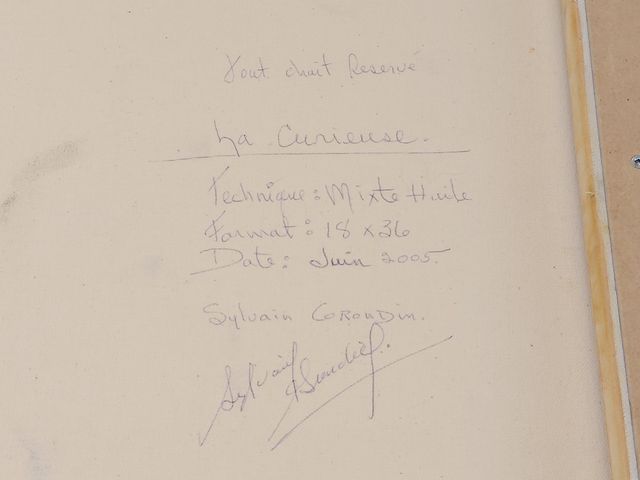 Tout droit Reservé
La Curieuse.
Technique: Mixte Huile
Format: 18 x 36
Date: Juin 2005.
Sylvain CORONDIN.
Sylvain